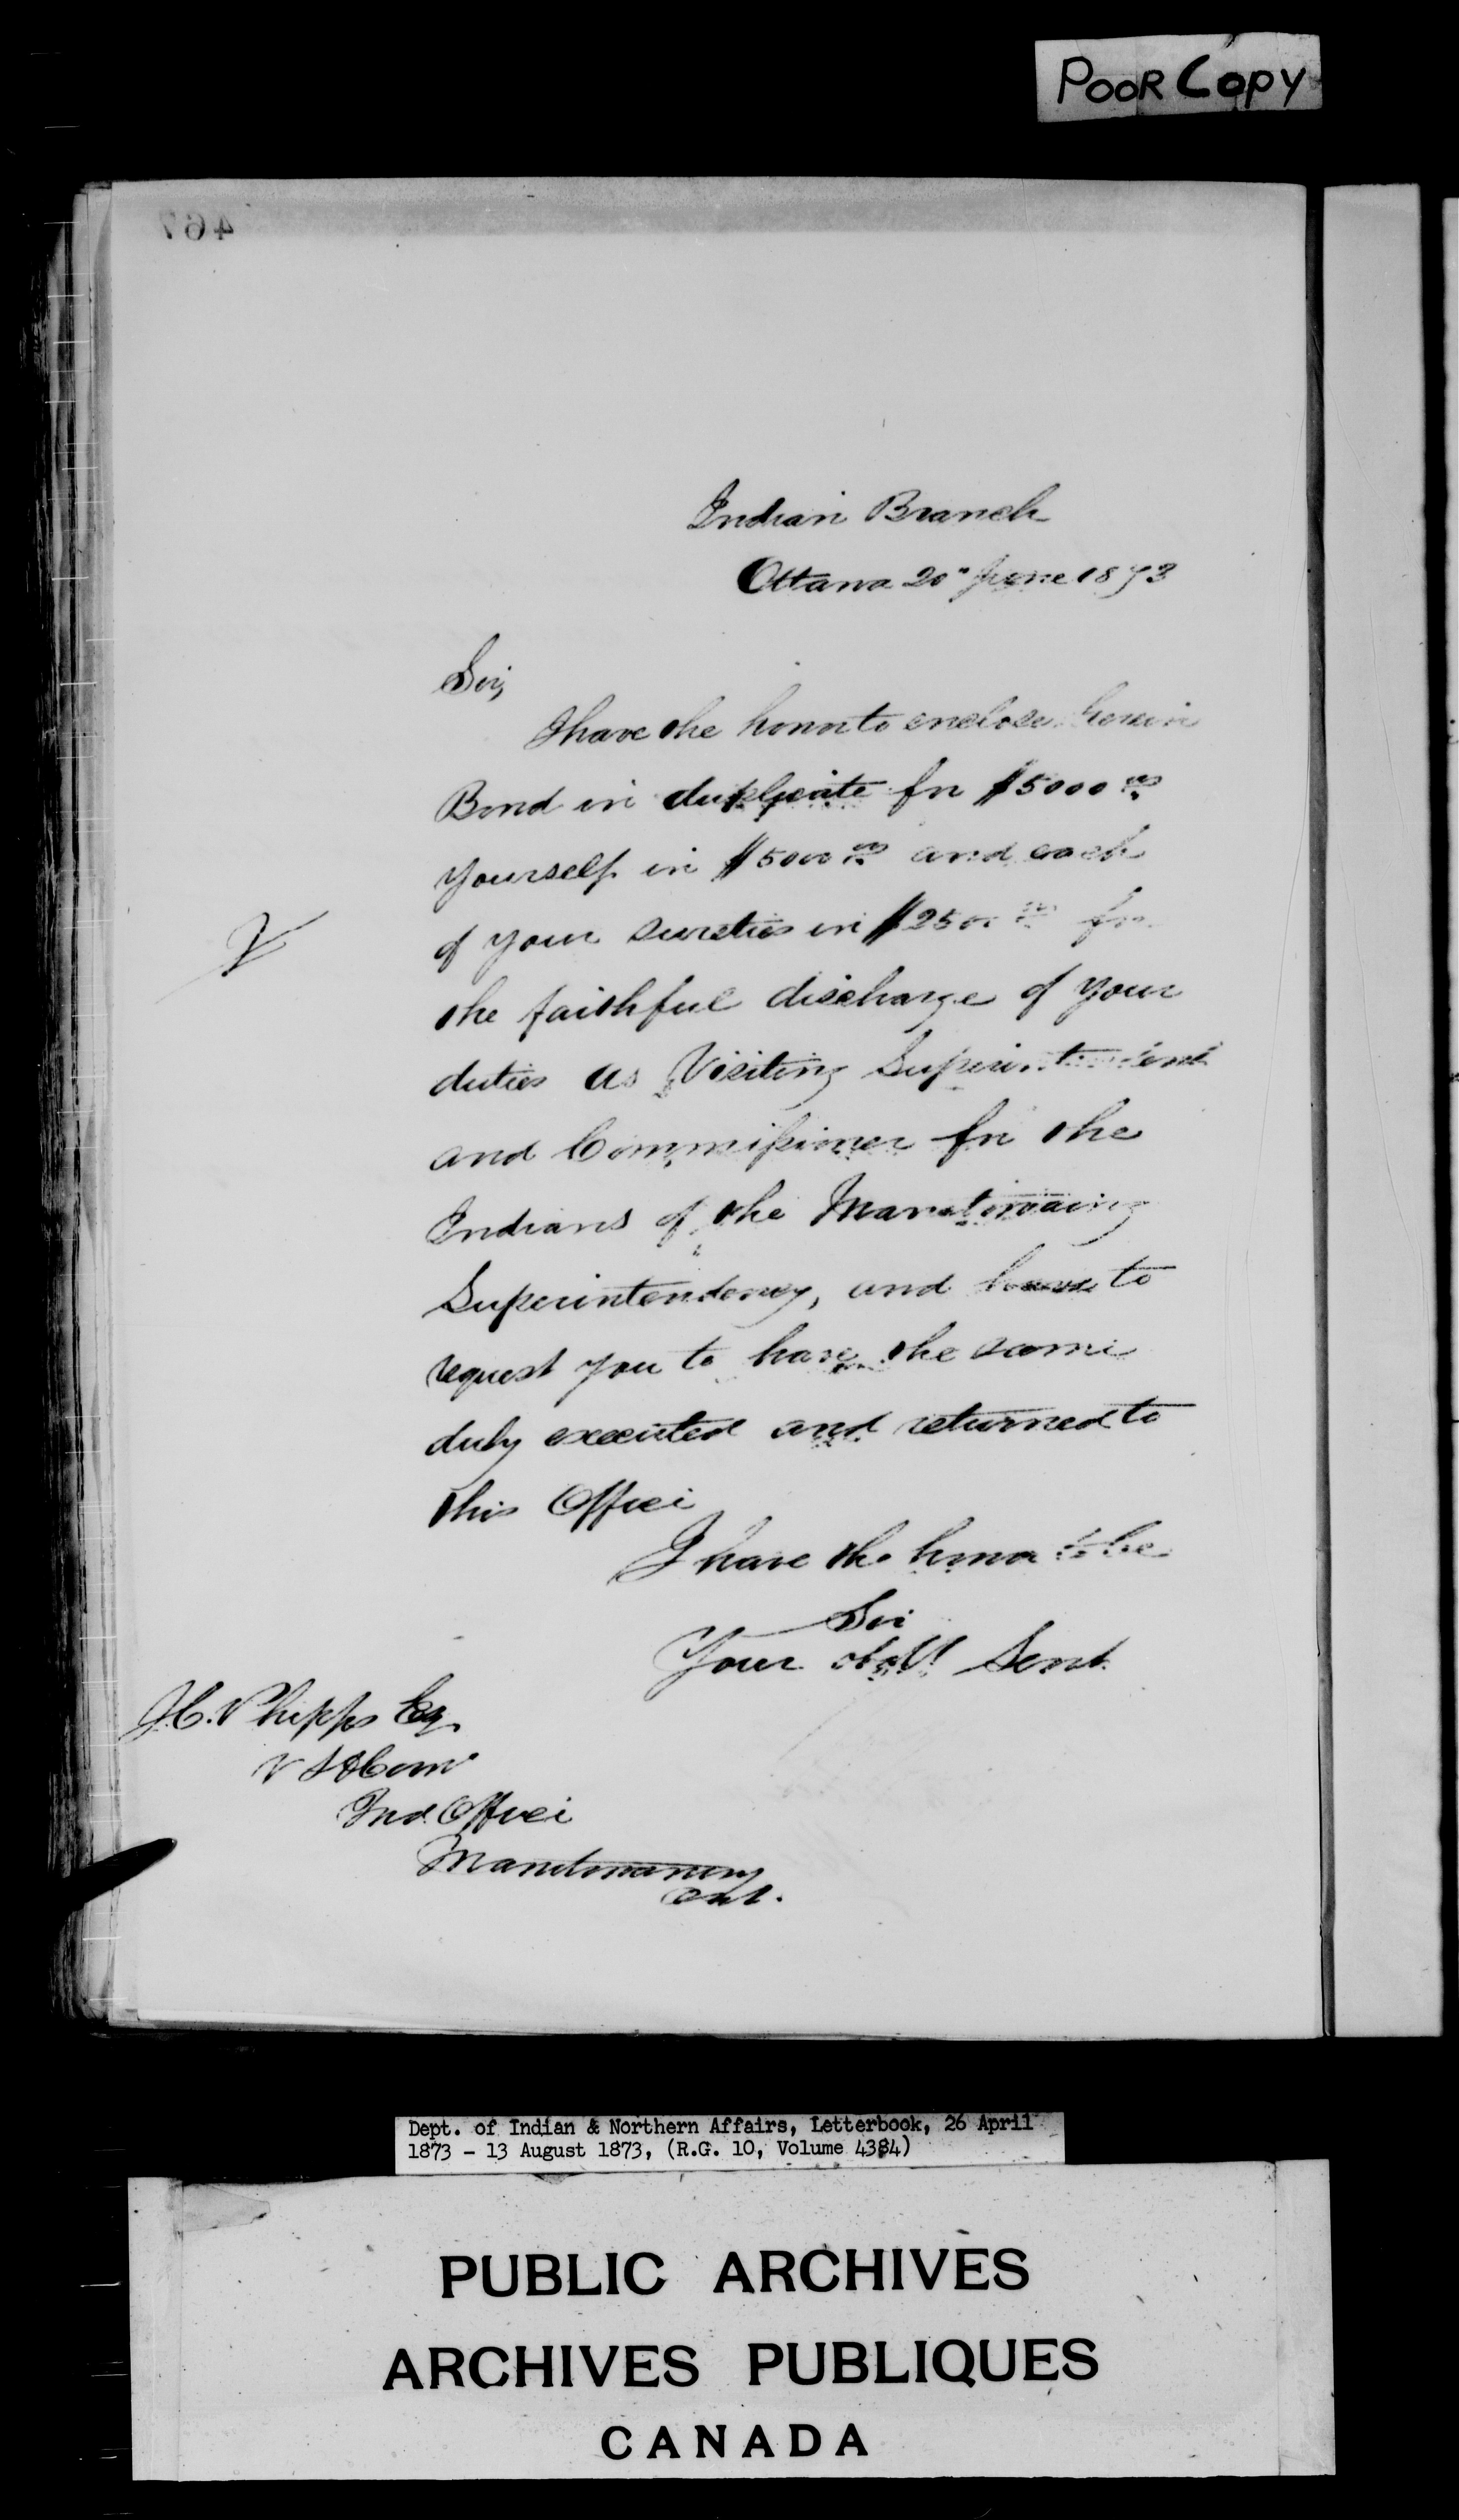 POOR COPY
467
Indian Branch
Ottawa 20" June 1873
Sir,
I have the honor to enclose herein
Bond in duplicate for $5000 00
yourself in $5000 00 and each
of your sureties in $2500 00 for
the faithful discharge of your
duties as Visiting Superintendent
and Commissioner for the
Indians of the Manitowaning
Superintendency, and have to
request you to have the same
duly executed and returned to
this Office
I have the honor to be
Sir
Your obdt Servt
J.C. Phipps Esq
V S & Comr
Ind Office
Manitowaning
Ont.
Dept. of Indian & Northern Affairs, Letterbook, 26 April
1873 - 13 August 1873, (R.G. 10, Volume 4384)
PUBLIC ARCHIVES
ARCHIVES PUBLIQUES
CANADA